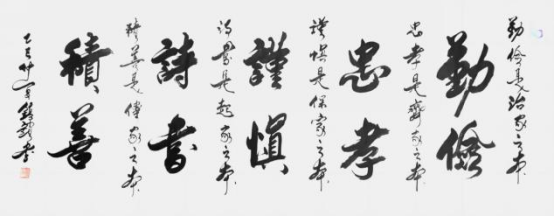 勤俭是治家之本
勤儉
忠孝是齊家之本
忠孝
谨慎是保家之本
謹慎
诗書是起家之本
詩書
積善是傳家之本
積善